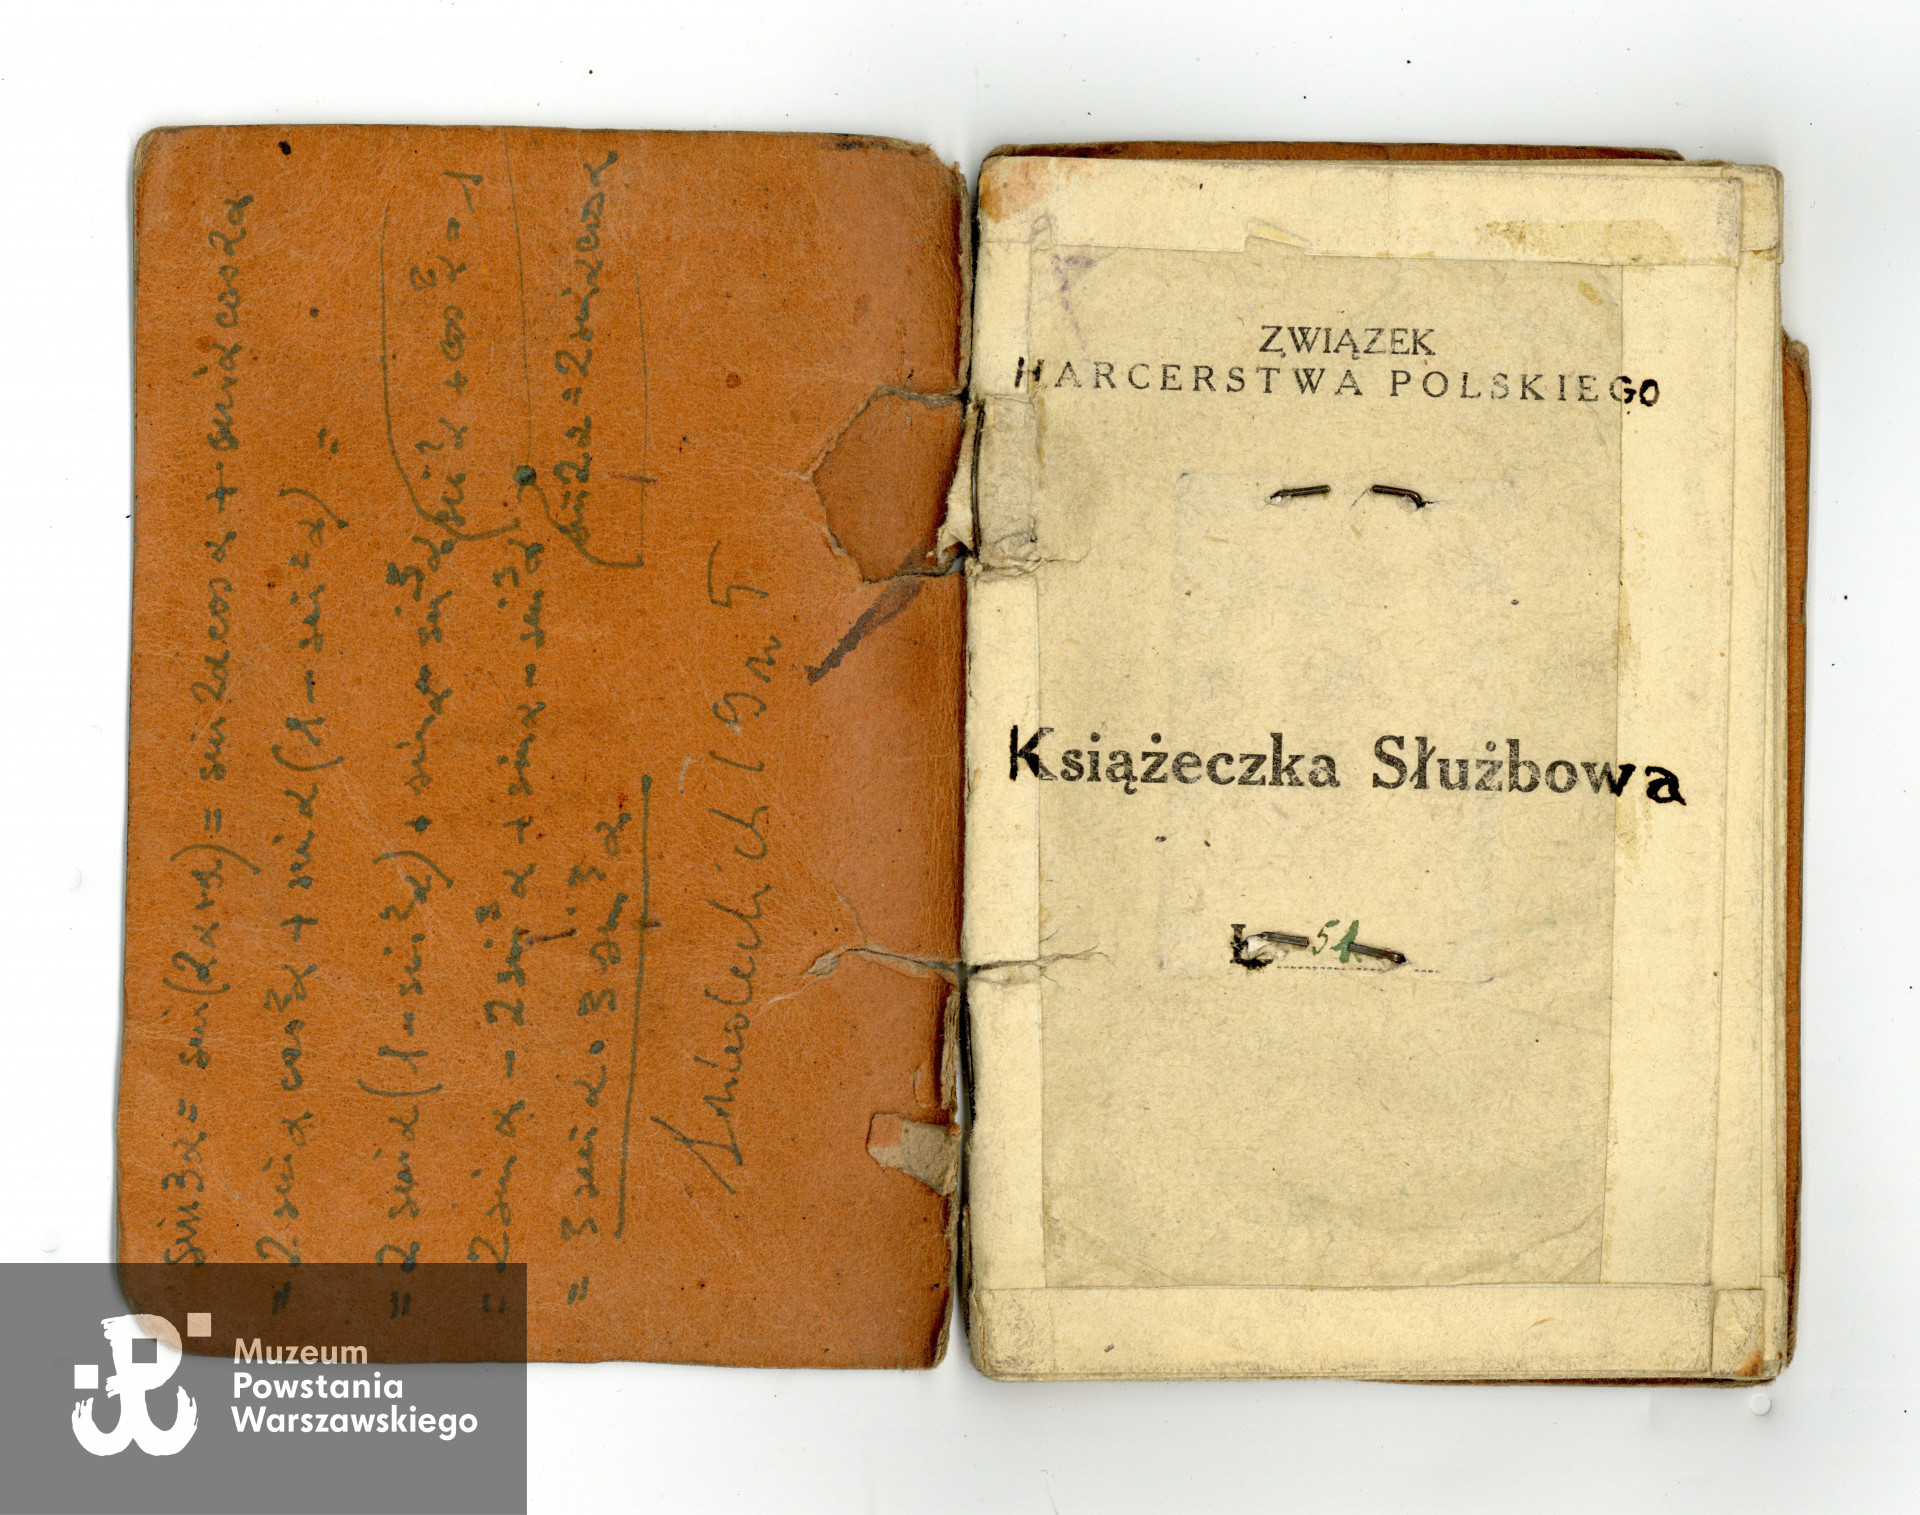 sin3α = sin(2α+α) = sin2αcosα + sinαcos2α
= 2 sinα cos²α + sinα(1 − sin²α)
= 2 sinα(1 − sin²α) + sinα − sin³α
sin²α + cos²α = 1
= 2 sinα − 2 sin³α + sinα − sin³α
sin2α = 2 sinαcosα
= 3 sinα · 3 sin³α
ZWIĄZEK
HARCERSTWA POLSKIEGO
Książeczka Służbowa
L 51
Muzeum
Powstania
Warszawskiego